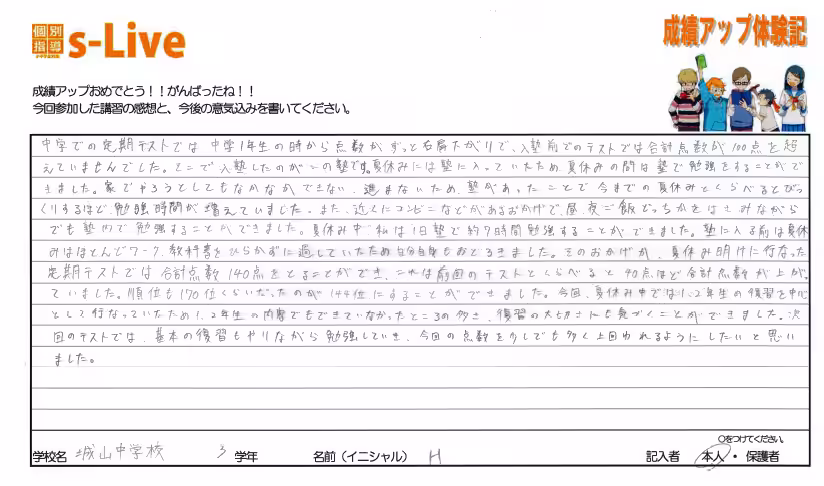 個別
指導
s-Live
成績アップ体験記
成績アップおめでとう！！がんばったね！！
今回参加した講習の感想と、今後の意気込みを書いてください。
中学での定期テストでは中学1年生の時から点数がずっと右肩下がりで、入塾前でのテストでは合計点数が100点を超
えていませんでした。そこで入塾したのがこの塾です。夏休みには塾に入っていたため、夏休みの間は塾で勉強をすることがで
きました。家でやろうとしてもなかなかできない、進まないため、塾があったことで今までの夏休みとくらべるとびっ
くりするほど、勉強時間が増えていました。また、近くにコンビニなどがあるおかげで、昼、夜ご飯どっちかをはさみながら
でも塾内で勉強することができました。夏休み中、私は1日塾で約7時間勉強することができました。塾に入る前は夏休
みはほとんどワーク、教科書をひらかずに過していたため自分自身もおどろきました。そのおかげか、夏休み明けに行なった
定期テストでは合計点数140点をとることができ、これは前回のテストとくらべると40点ほど合計点数が上がっ
ていました。順位も170位くらいだったのが144位にすることができました。今回、夏休み中では1、2年生の復習を中心
として行なっていたため1、2年生の内容でもできていなかったところの多さ、復習の大切さにも気づくことができました。次
回のテストでは、基本の復習もやりながら勉強していき、今回の点数を少しでも多く上回われるようにしたいと思い
ました。
○をつけてください。
学校名 城山中学校 3 学年 名前（イニシャル） H 記入者 本人・保護者